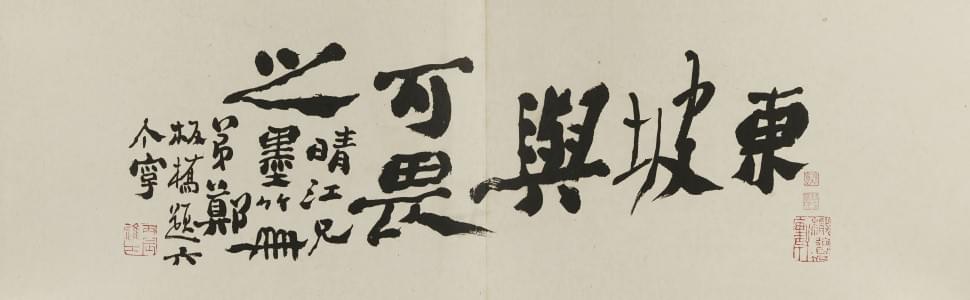 東坡與可畏之
晴江兄
墨竹冊
弟鄭
板橋題六
个字